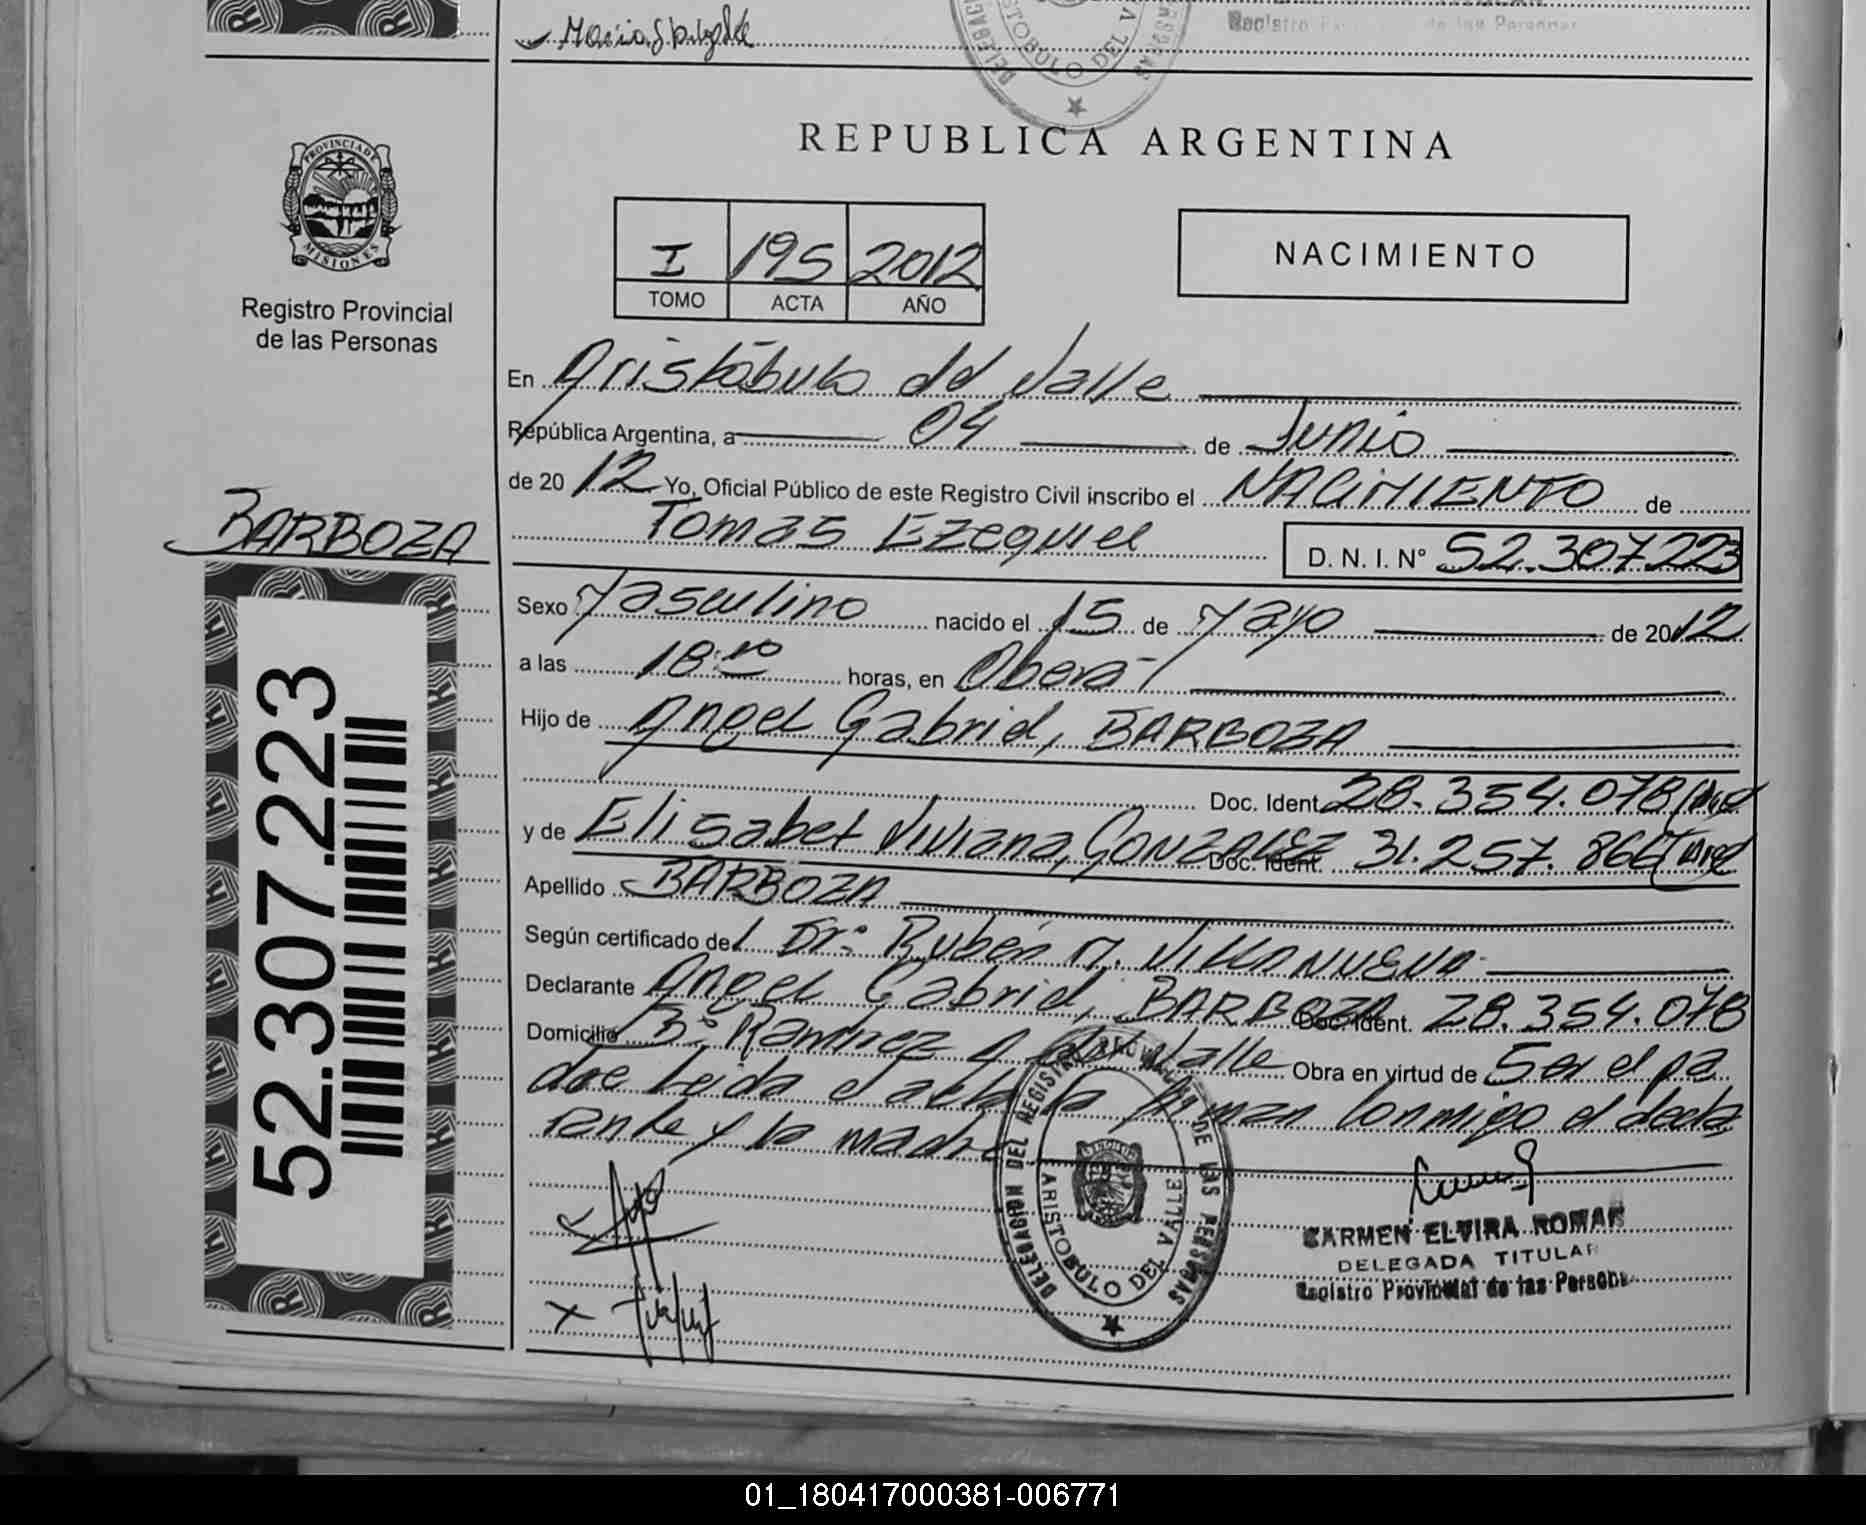 REPUBLICA ARGENTINA
PROVINCIA DE
MISIONES
Registro Provincial
de las Personas
I 195 2012
TOMO ACTA AÑO
NACIMIENTO
En Aristóbulo del Valle
República Argentina, a 04 de Junio
de 2012 Yo, Oficial Público de este Registro Civil inscribo el NACIMIENTO de
Tomas Ezequiel D. N. I. N° 52.307.223
BARBOZA
52.307.223
Sexo Masculino nacido el 15 de Mayo de 2012
a las 18:10 horas, en Oberá
Hijo de Angel Gabriel, BARBOZA
Doc. Ident. 28.354.078
y de Elisabet Viviana, GONZALEZ Doc. Ident. 31.257.866
Apellido BARBOZA
Según certificado del Dr: Rubén M. VILLANUEVA
Declarante Angel Gabriel, BARBOZA Doc. Ident. 28.354.078
Domicilio B° Ramirez A del Valle Obra en virtud de Ser el pa
dre Leida el acta la firman conmigo el decla
rante y la madre
DELEGACION DEL REGISTRO PROVINCIAL DE LAS PERSONAS
ARISTOBULO DEL VALLE
CARMEN ELVIRA ROMAN
DELEGADA TITULAR
Registro Provincial de las Personas
01_180417000381-006771